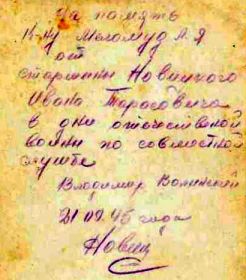 На память
от
старшины Новицкого
Ивана Тарасовича
в дни отечественой
войны по совместной
службе
Владимир Волинский
21 09 45 года
Новиц